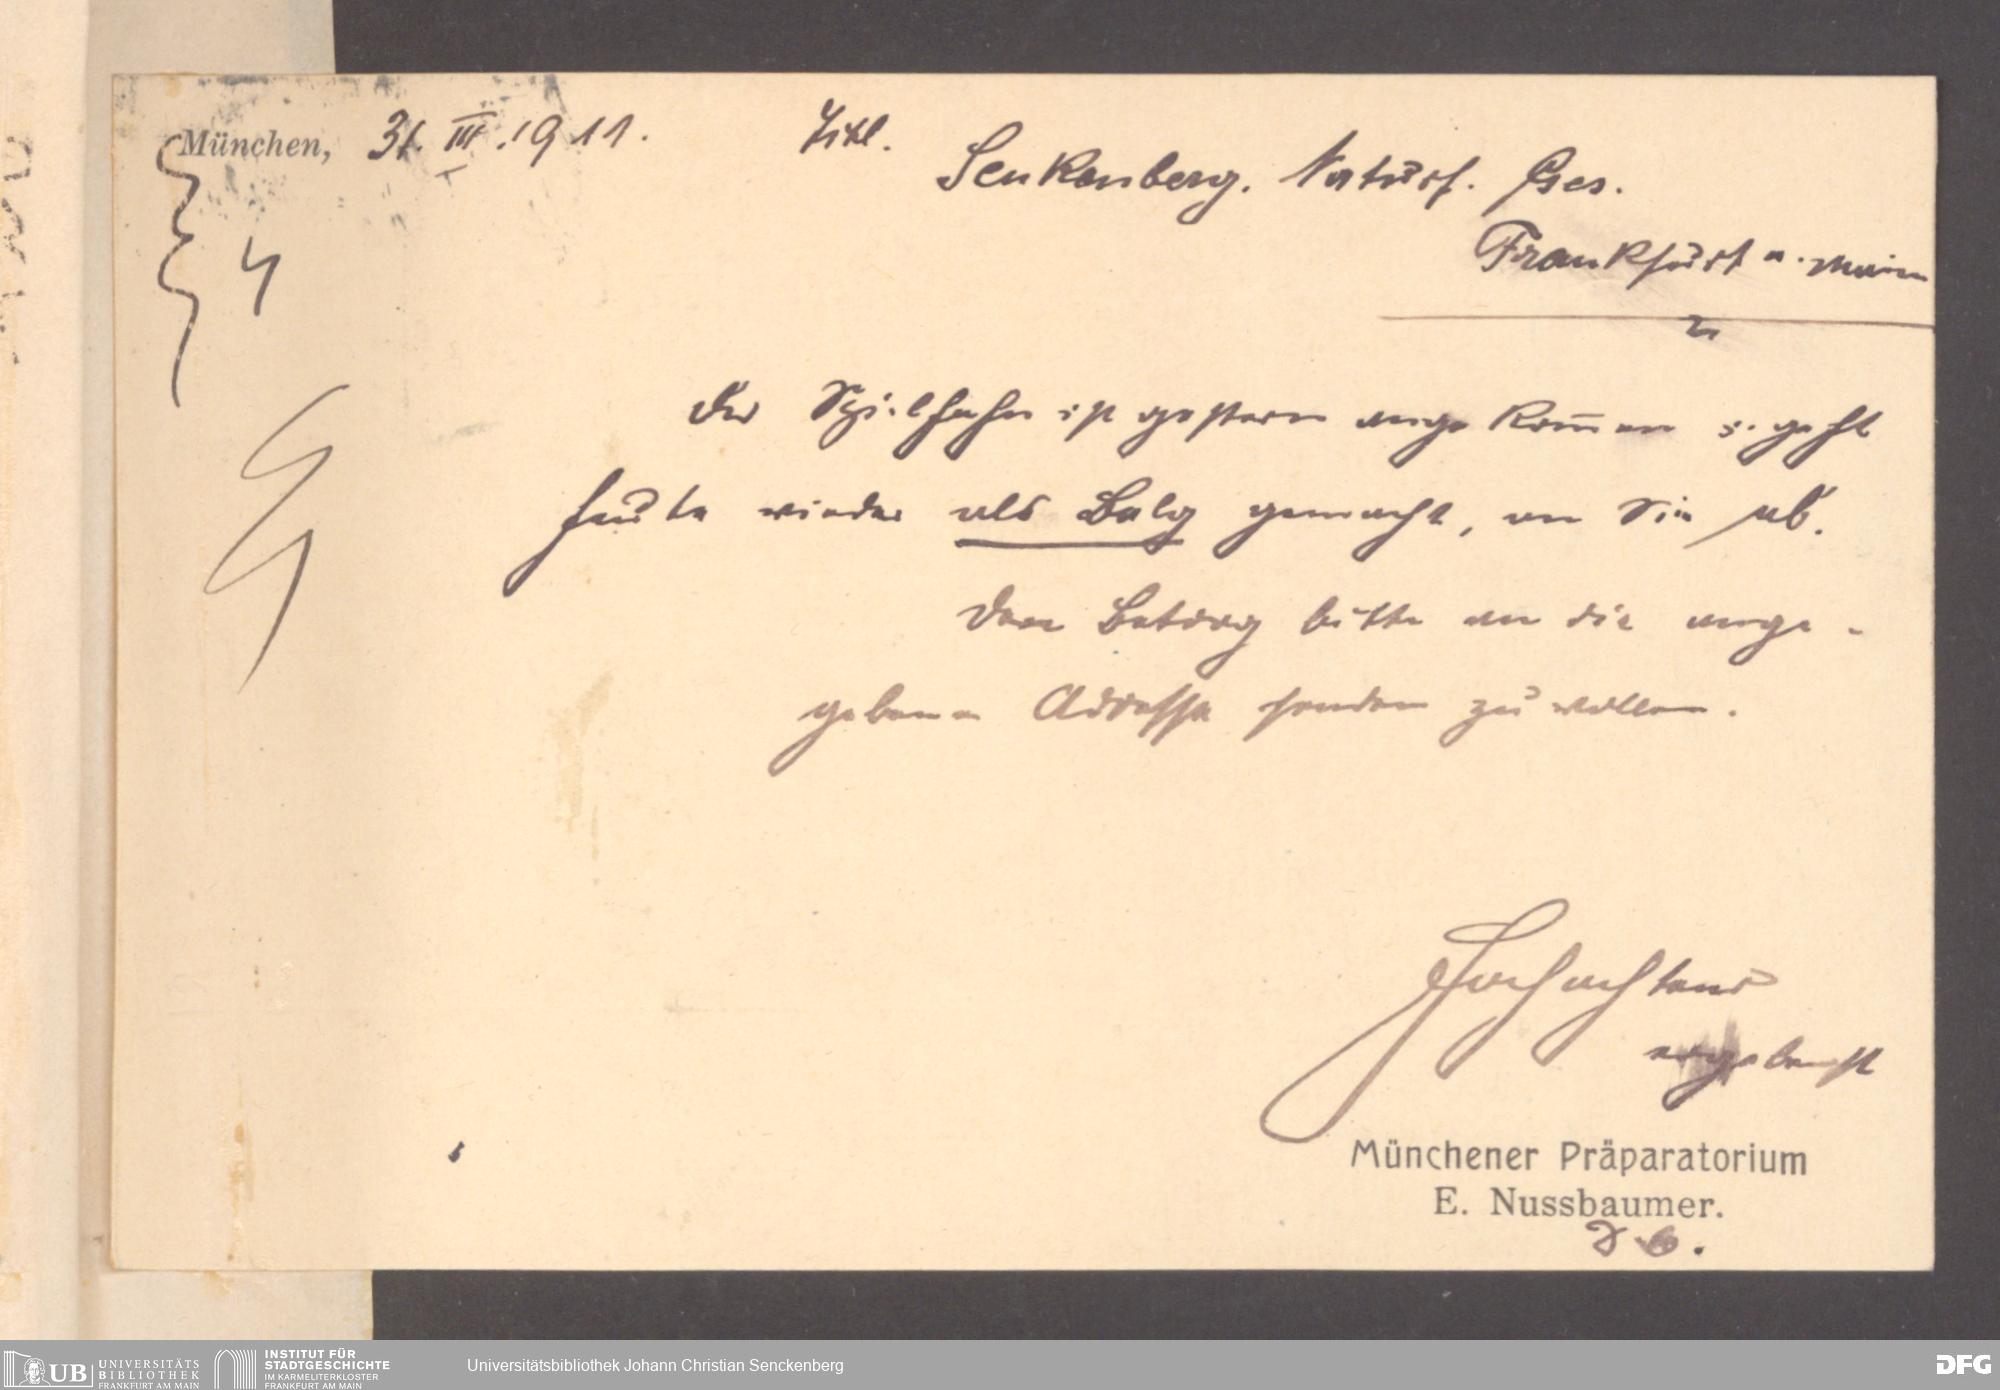 München, 31. III. 1911. Titl.
Senkenberg. Naturf. Ges.
Frankfurt a. Main
Der Spielhahn ist gestern angekom̅en u. geht
heute wieder als Balg gemacht, an Sie ab.
Den Betrag bitte an die ange-
gebene Adresse senden zu wollen.
Hochachtend
ergebenst
Münchener Präparatorium
E. Nussbaumer.
UB UNIVERSITÄTS
BIBLIOTHEK
FRANKFURT AM MAIN
INSTITUT FÜR
STADTGESCHICHTE
IM KARMELITERKLOSTER
FRANKFURT AM MAIN
Universitätsbibliothek Johann Christian Senckenberg
DFG